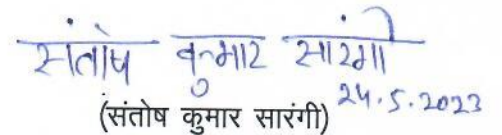 संतोष कुमार सारंगी
24.5.2023
(संतोष कुमार सारंगी)